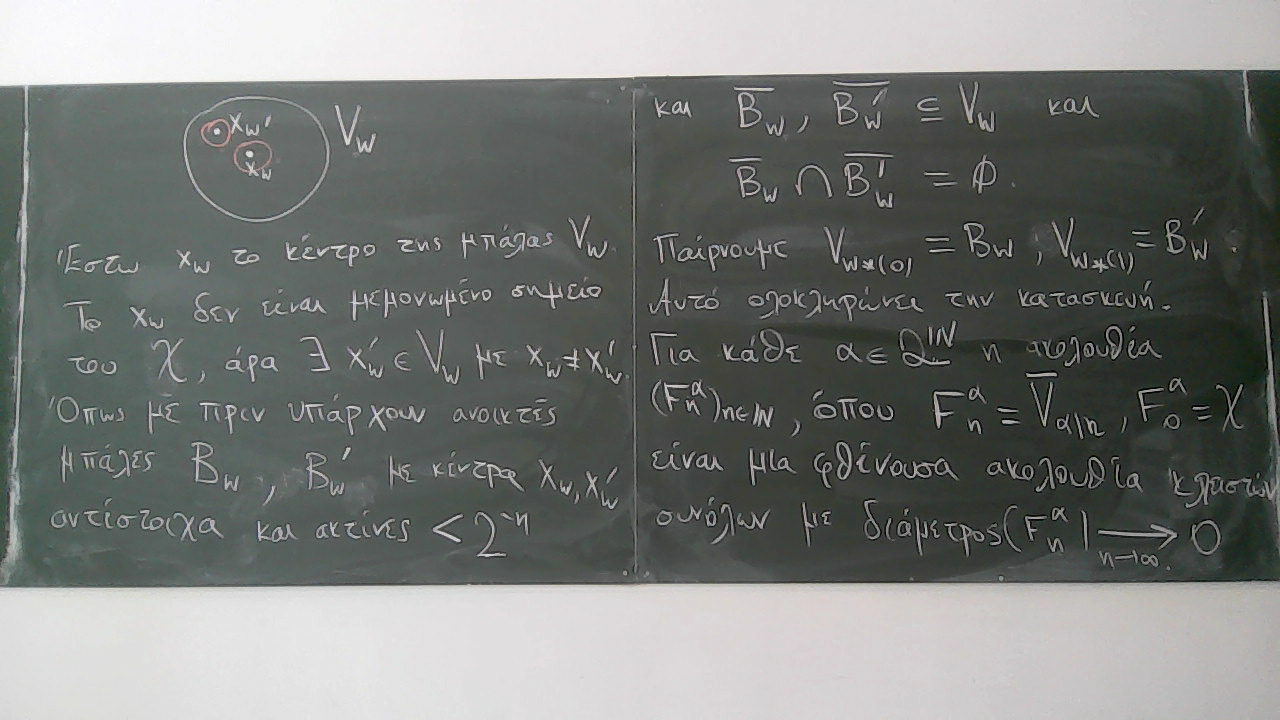 x_w'
x_w
V_w
Έστω x_w το κέντρο της μπάλας V_w.
Το x_w δεν είναι μεμονωμένο σημείο
του χ, άρα ∃ x_w' ∈ V_w με x_w ≠ x_w'.
Όπως με πριν υπάρχουν ανοικτές
μπάλες B_w, B_w' με κέντρα x_w, x_w'
αντίστοιχα και ακτίνες < 2^{-n}
και \overline{B_w}, \overline{B_w'} ⊆ V_w και
\overline{B_w} ∩ \overline{B_w'} = ∅.
Παίρνουμε V_{w*(0)} = B_w, V_{w*(1)} = B_w'.
Αυτό ολοκληρώνει την κατασκευή.
Για κάθε α ∈ 2^ℕ η ακολουθία
(F_n^α)_{n∈ℕ}, όπου F_n^α = \overline{V}_{α|n}, F_0^α = χ
είναι μια φθίνουσα ακολουθία κλειστών
συνόλων με διάμετρος(F_n^α) ⟶_{n→∞.} 0